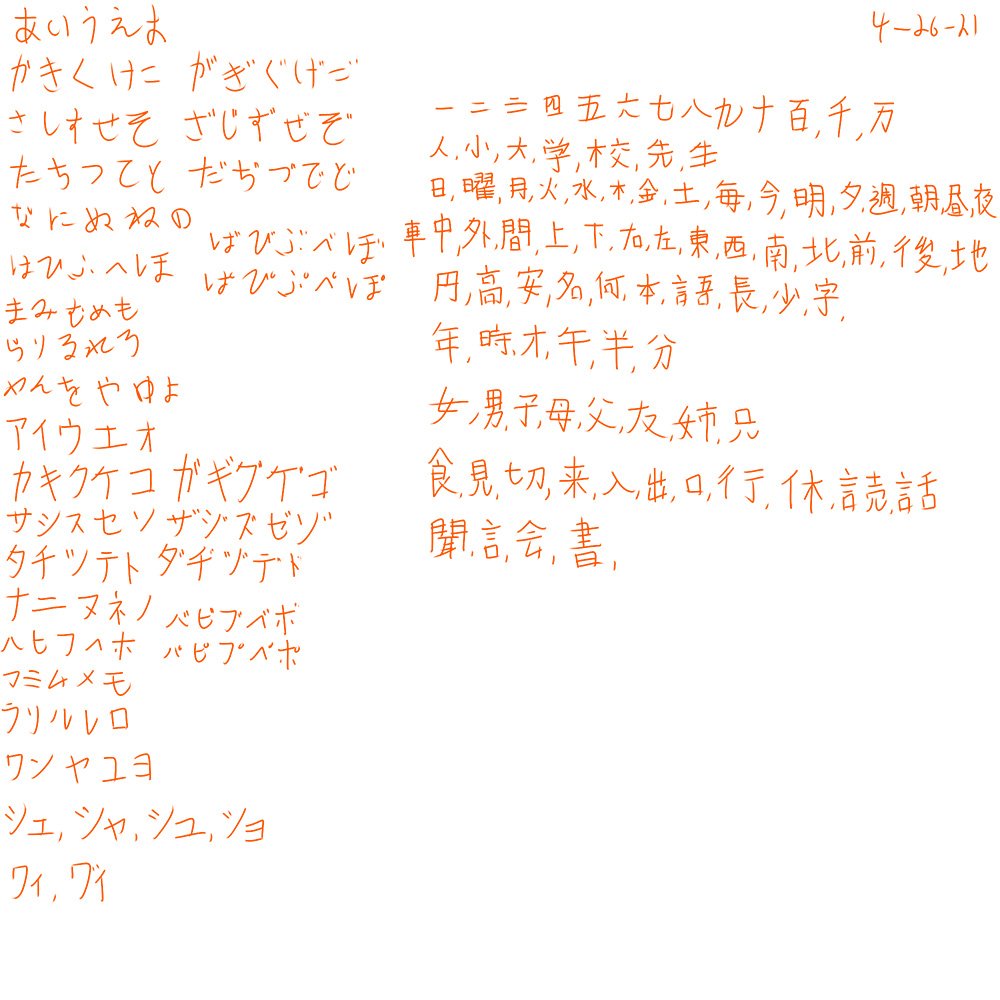 4-26-21
あいうえお
かきくけこ がぎぐげご
さしすせそ ざじずぜぞ
たちつてと だぢづでど
なにぬねの
はひふへほ
ばびぶべぼ
ぱぴぷぺぽ
まみむめも
らりるれろ
わんをやゆよ
アイウエオ
カキクケコ ガギグゲゴ
サシスセソ ザジズゼゾ
タチツテト ダヂヅデド
ナニヌネノ
ハヒフヘホ
バビブベボ
パピプペポ
マミムメモ
ラリルレロ
ワンヤユヨ
シェ,シャ,シュ,ショ
ワィ,ヴィ
一二三四五六七八九十百,千,万
人,小,大,学,校,先,生
日,曜,月,火,水,木,金,土,毎,今,明,夕,週,朝,昼,夜
車中,外,間,上,下,右,左,東,西,南,北,前,後,地
円,高,安,名,何,本,語,長,少,字,
年,時,才,午,半,分
女,男,子,母,父,友,姉,兄
食,見,切,来,入,出,口,行,休,読,話
聞,言,会,書,